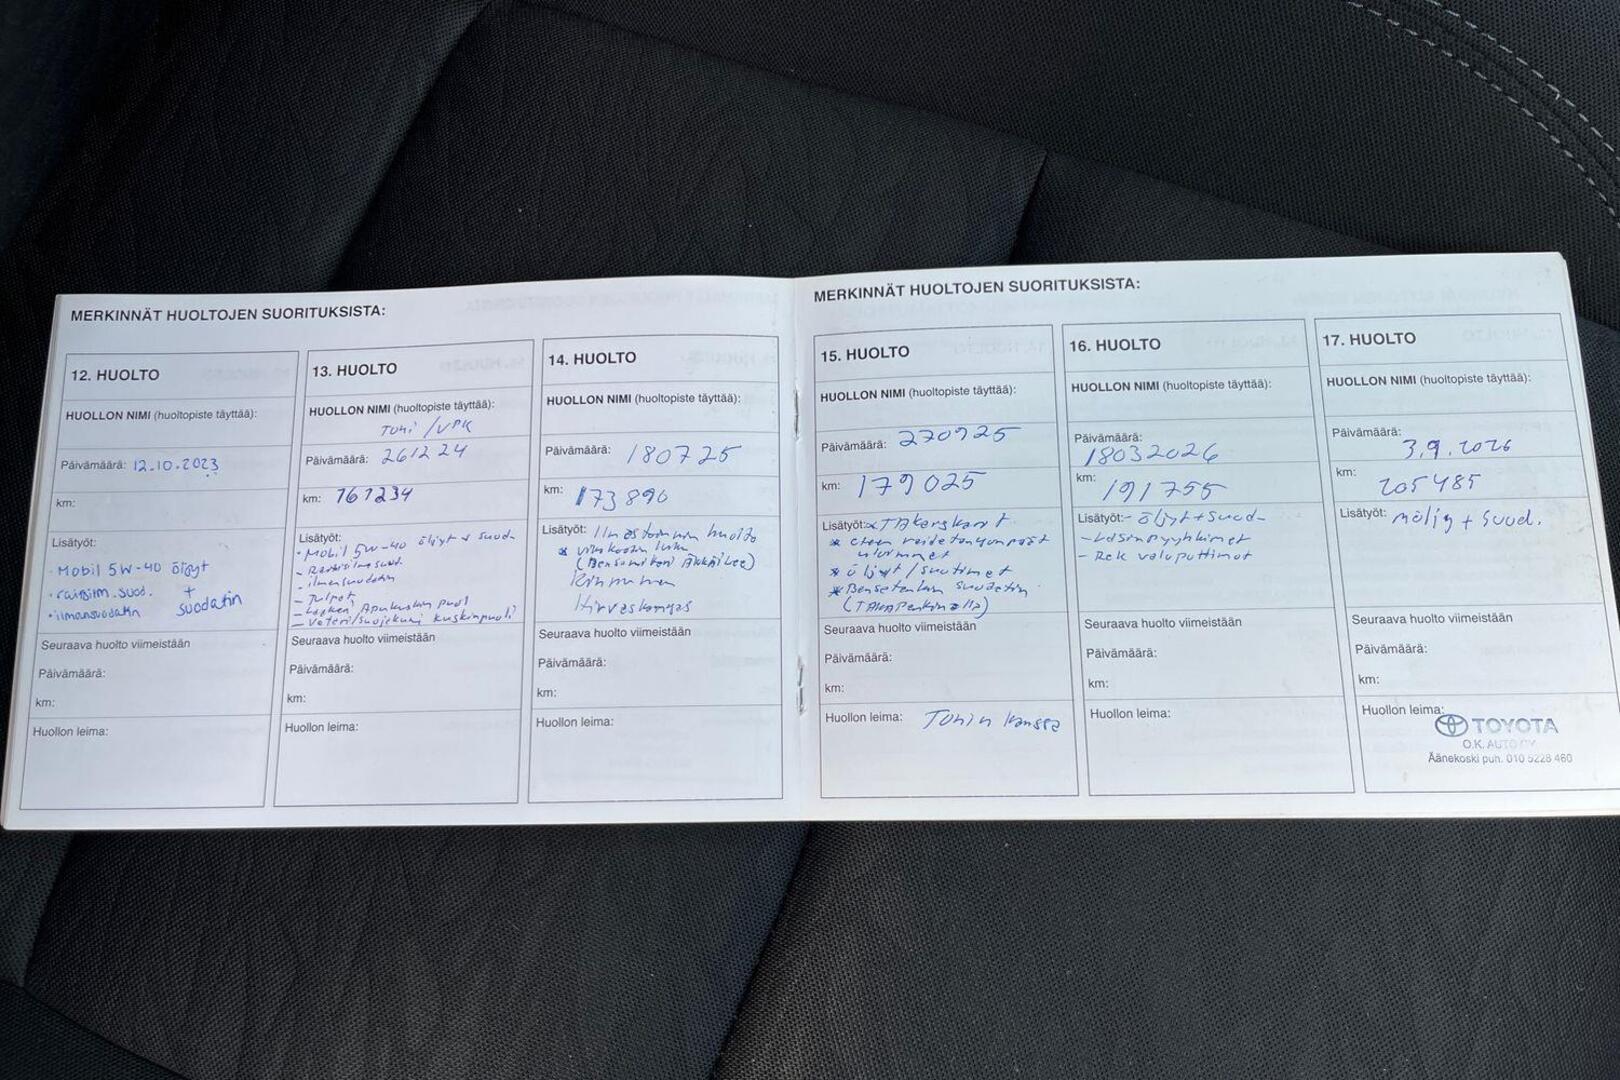 MERKINNÄT HUOLTOJEN SUORITUKSISTA:
12. HUOLTO
HUOLLON NIMI (huoltopiste täyttää):
Päivämäärä: 12.10.2023
km:
Lisätyöt:
- Mobil 5W-40 öljyt
+
• raitisilm. suod.
• ilmansuodatin suodatin
Seuraava huolto viimeistään
Päivämäärä:
km:
Huollon leima:
13. HUOLTO
HUOLLON NIMI (huoltopiste täyttää):
Toni /VPK
Päivämäärä: 261224
km: 161234
Lisätyöt:
- Mobil 5W-40 öljyt + suod
- Raitisilmasuod.
- ilmansuodatin
- Tulpat
Apukuskin puol
kuskinpuoli
Seuraava huolto viimeistään
Päivämäärä:
km:
Huollon leima:
14. HUOLTO
HUOLLON NIMI (huoltopiste täyttää):
Päivämäärä: 180725
km: 173890
Lisätyöt: Ilmastoinnin huolto
Hirvaskangas
Seuraava huolto viimeistään
Päivämäärä:
km:
Huollon leima:
MERKINNÄT HUOLTOJEN SUORITUKSISTA:
15. HUOLTO
HUOLLON NIMI (huoltopiste täyttää):
Päivämäärä: 270925
km: 179025
Lisätyöt: * TAkaiskarit
* öljyt/suotimet
suodatin
Seuraava huolto viimeistään
Päivämäärä:
km:
Huollon leima: Tonin kanssa
16. HUOLTO
HUOLLON NIMI (huoltopiste täyttää):
Päivämäärä:
18032026
km:
191755
Lisätyöt: - öljyt + suod-
- Lasinpyyhkimet
- Rek valopolttimot
Seuraava huolto viimeistään
Päivämäärä:
km:
Huollon leima:
17. HUOLTO
HUOLLON NIMI (huoltopiste täyttää):
Päivämäärä:
3.9.2026
km:
205485
Lisätyöt: möljy + suod.
Seuraava huolto viimeistään
Päivämäärä:
km:
Huollon leima:
TOYOTA
O.K. AUTO OY
Äänekoski puh. 010 5228 460